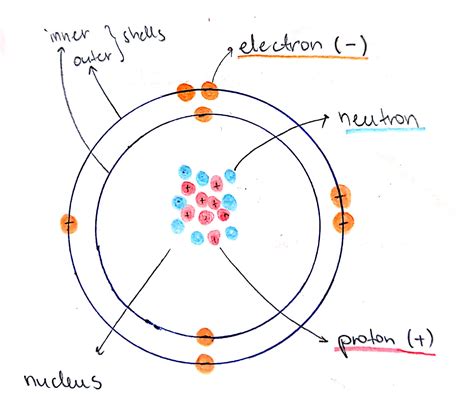 inner } shells
outer
electron (-)
neutron
proton (+)
nucleus